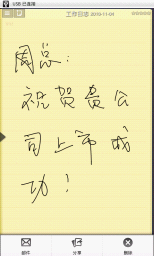 USB 已连接
工作日志 2010-11-04
周总：
祝贺贵公
司上市成
功！
邮件 分享 删除